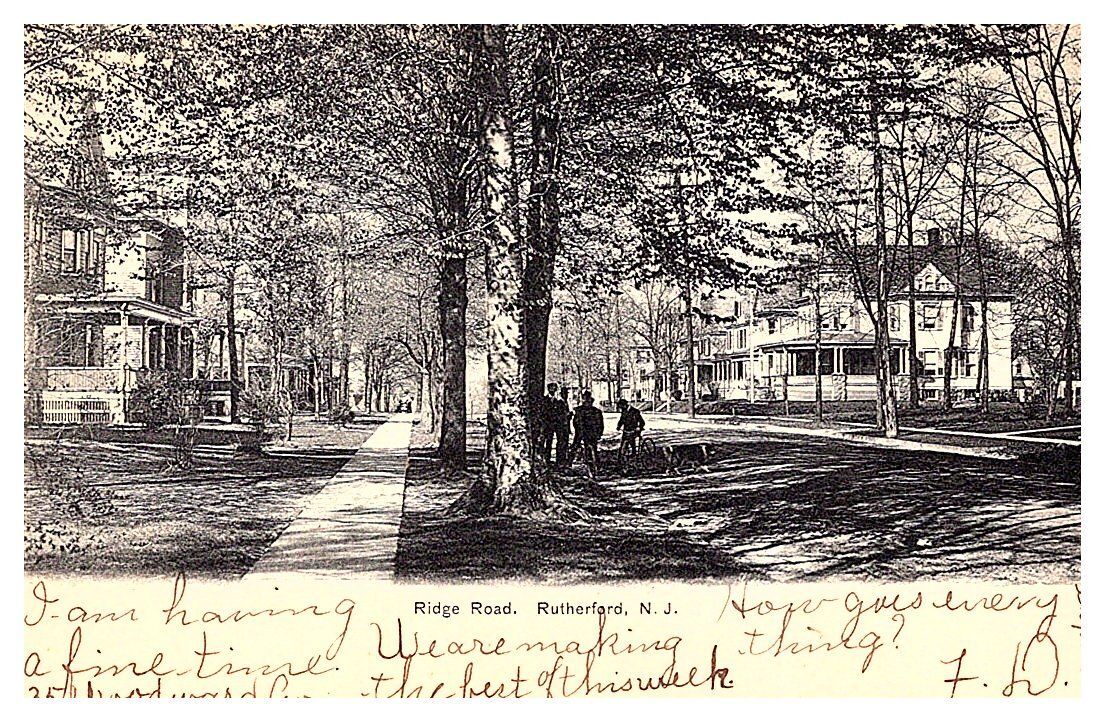 Ridge Road. Rutherford, N. J.
I am having
a fine time.
Woodward
We are making
the best of this week.
How goes every
thing?
F. D.